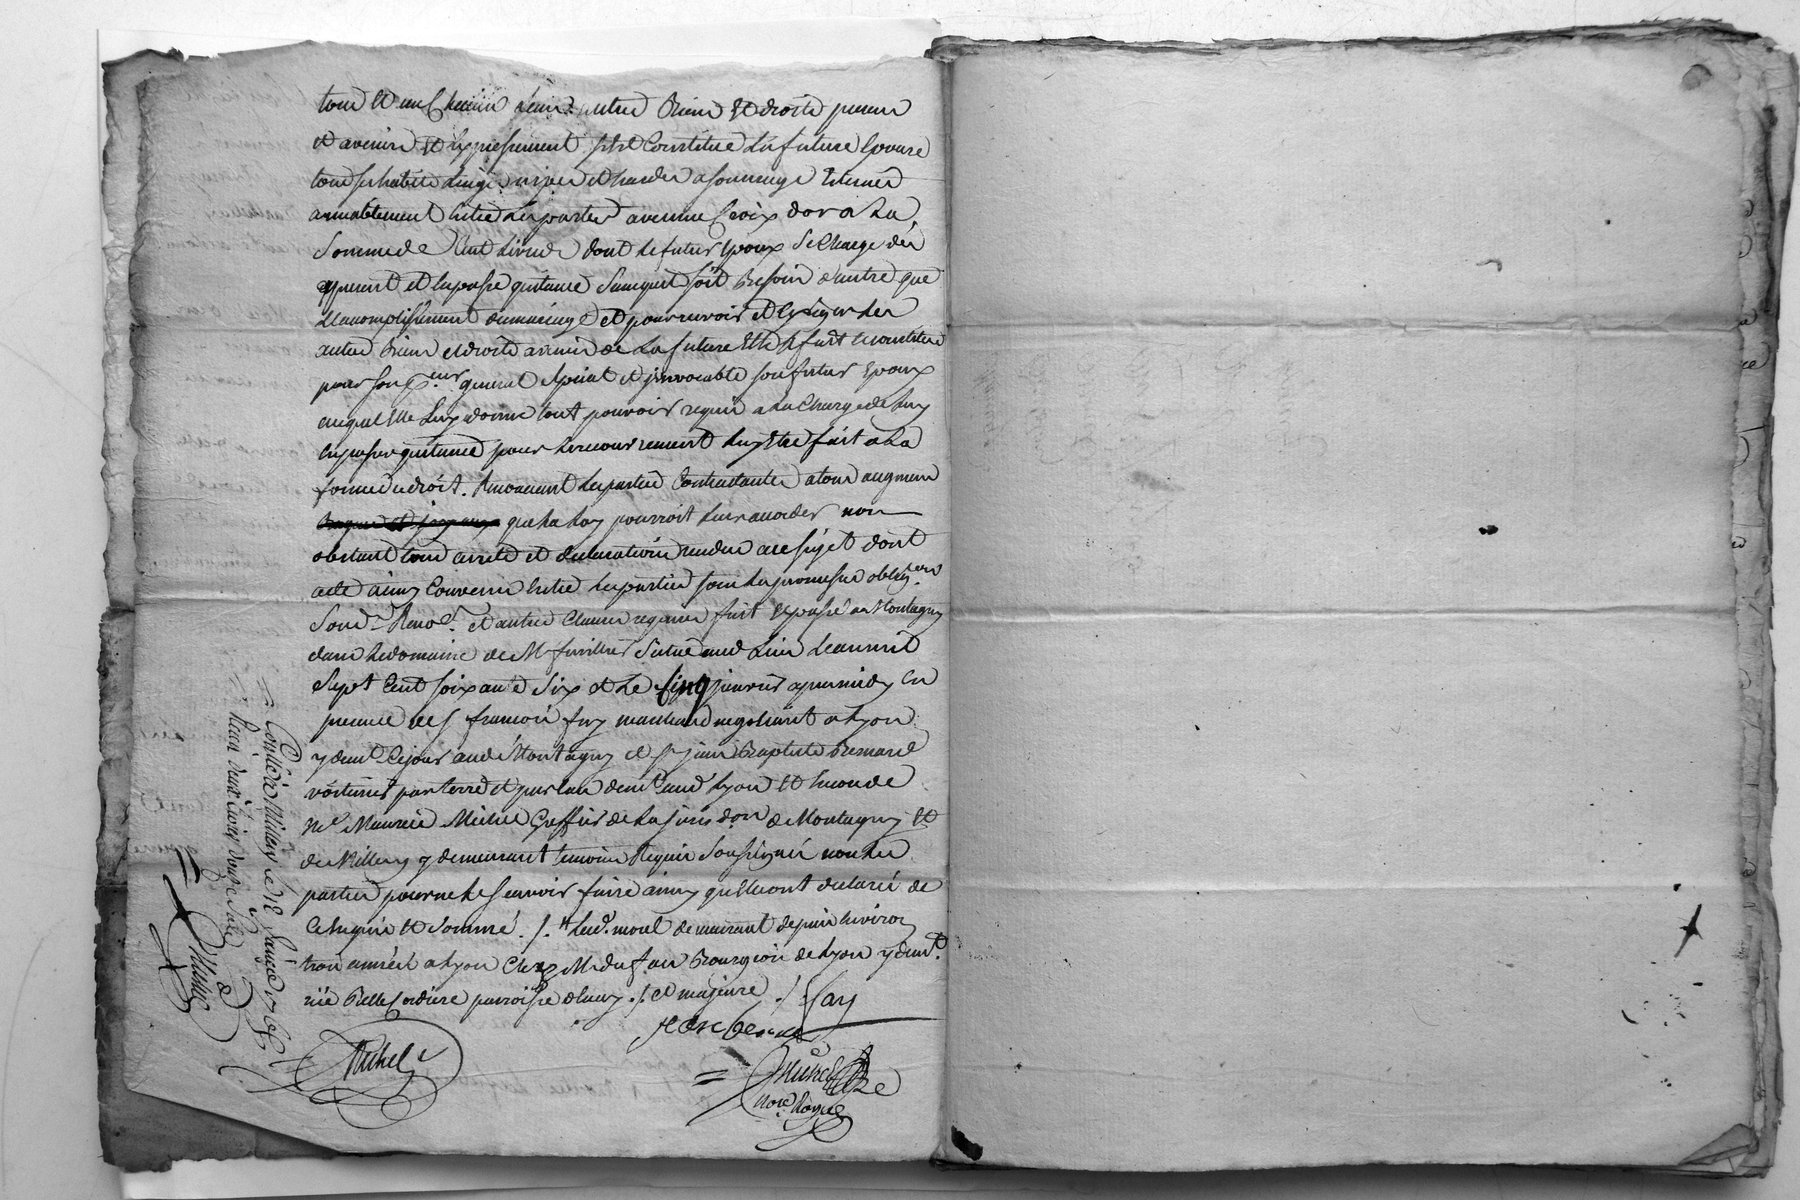 tous et un chacun leurs autres biens et droits presens
et avenir et expressement s'est constitué la future epouse
tous ses habits linges nipes et hardes a son usage estimés
amiablement entre les parties avec une croix d'or a la
somme de cent livres dont le futur epoux se charge dès
appresent et en passe quittance sans quil soit besoin d'autre que
l'accomplissement du mariage et pour recevoir et exiger les
autres biens et droits avenir de la future elle a fait et constitué
pour son p.eur general special et irrevocable son futur epoux
auquel elle luy donne tout pouvoir requis a la charge de luy
en passer quittance pour le recouvrement luy estre fait a la
forme du droit. Renonceant les parties contractantes a tous augmens
que la loy pourroit leur accorder non
obstant tous arrets et declarations rendus au sujet dont
acte ainsy convenu entre les parties sous les promesses oblig.ons
soum.s Reno.s et autres clauses requises fait et passé au Montagny
dans le domaine de M situé aud. lieu l'an mil
sept cent soixante six et le cinq janvier apres midy en
presence de s. françois fay marchand negotiant a Lyon
y dem.t ce jour aud. Montagny et s.r jean Baptiste Besnard
voiturier par terre et par eau dem.t aud. Lyon et encore de
M.e Maurice Michel Greffier de la jurisdon de Montagny et
de Millery y demeurant temoins requis soussignés non les
parties pour ne le scavoir faire ainsy quelles ont declaré de
ce enquis et sommé ./. lad. morel demeurant depuis environ
trois années a Lyon chez M. dufau Bourgeois de Lyon y dem.t
rüe Belle cordiere parroisse d'ainay ./. et majeure ./. Fay
jean besnard
Michel
Michel
Nore. Royal
Conllé à Millery le 18 janvier 1766
Reçu deux livres douze sols
Michel